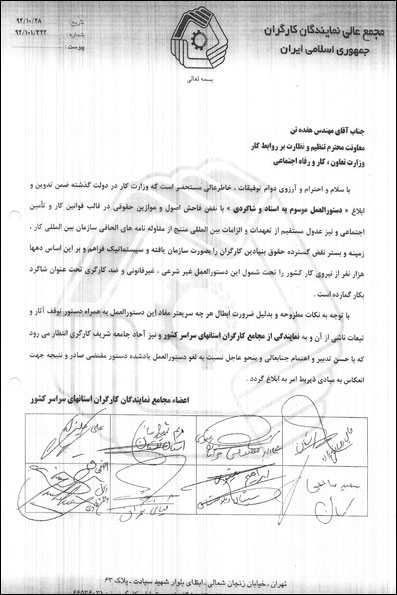 مجمع عالی نمایندگان کارگران
جمهوری اسلامی ایران
تاریخ : ۹۲/۱۰/۲۸
شماره : ۹۲/۱۰۱/۳۲۲
پیوست :
بسمه تعالی
جناب آقای مهندس هفده تن
معاونت محترم تنظیم و نظارت بر روابط کار
وزارت تعاون ، کار و رفاه اجتماعی
با سلام و احترام و آرزوی دوام توفیقات ، خاطرعالی مستحضر است که وزارت کار در دولت گذشته ضمن تدوین و
ابلاغ « دستورالعمل موسوم به استاد و شاگردی » با نقض فاحش اصول و موازین حقوقی در قالب قوانین کار و تأمین
اجتماعی و نیز عدول مستقیم از تعهدات و الزامات بین المللی منتج از مقاوله نامه های الحاقی سازمان بین المللی کار ،
زمینه و بستر نقض گسترده حقوق بنیادین کارگران را بصورت سازمان یافته و سیستماتیک فراهم و بر این اساس دهها
هزار نفر از نیروی کار کشور را تحت شمول این دستورالعمل غیر شرعی ، غیرقانونی و ضد کارگری تحت عنوان شاگرد
بکار گمارده است .
با توجه به نکات مطروحه و بدلیل ضرورت ابطال هر چه سریعتر مفاد این دستورالعمل به همراه دستور توقف آثار و
تبعات ناشی از آن و به نمایندگی از مجامع کارگران استانهای سراسر کشور و نیز آحاد جامعه شریف کارگری انتظار می رود
که با حسن تدبیر و اهتمام جنابعالی و بنحو عاجل نسبت به لغو دستورالعمل یادشده دستور مقتضی صادر و نتیجه جهت
انعکاس به مبادی ذیربط امر به ابلاغ گردد .
اعضاء مجامع نمایندگان کارگران استانهای سراسر کشور
تهران ، خیابان زنجان شمالی ، ابتدای بلوار شهید سیادت ، پلاک ۶۳